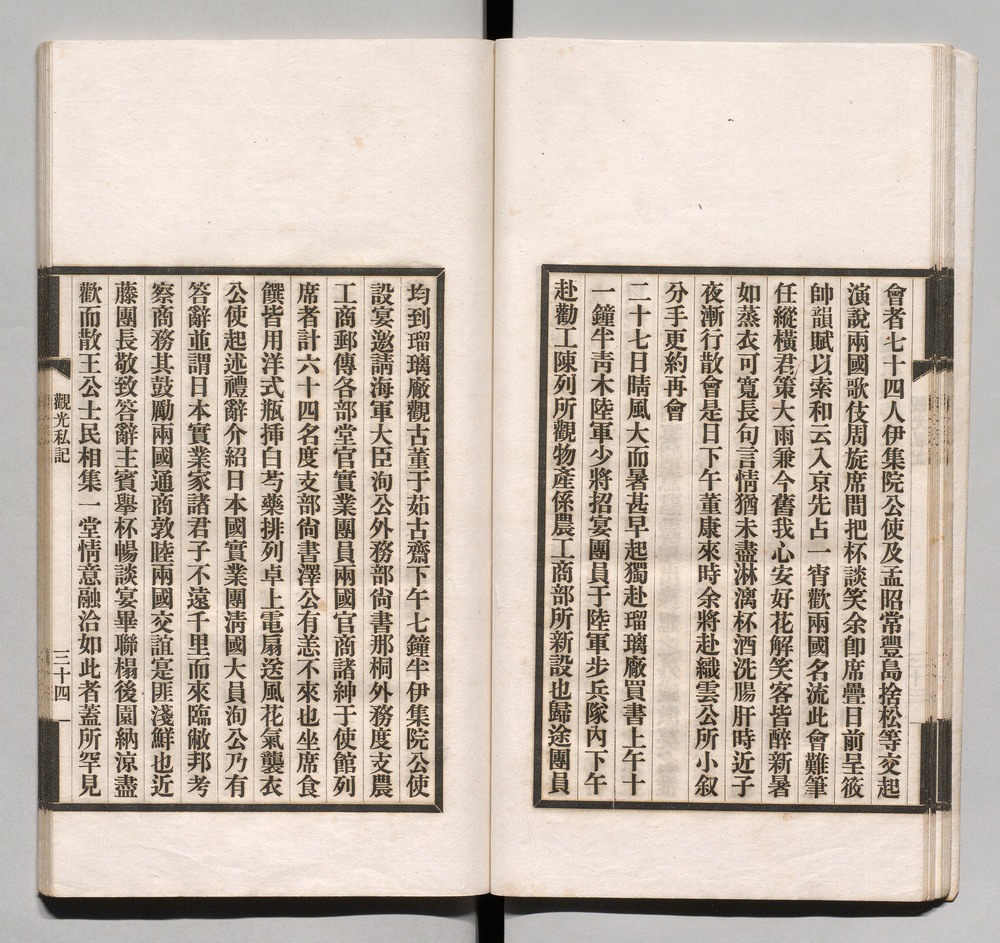 會者七十四人伊集院公使及孟昭常豐島捨松等交起
演說兩國歌伎周旋席間把杯談笑余卽席疊日前呈筱
帥韻賦以索和云入京先占一宵歡兩國名流此會難筆
任縱橫君策大雨兼今舊我心安好花解笑客皆醉新暑
如蒸衣可寬長句言情猶未盡淋漓杯酒洗腸肝時近子
夜漸行散會是日下午董康來時余將赴織雲公所小叙
分手更約再會
二十七日晴風大而暑甚早起獨赴瑠璃廠買書上午十
一鐘半靑木陸軍少將招宴團員于陸軍步兵隊內下午
赴勸工陳列所觀物產係農工商部所新設也歸途團員
均到瑠璃廠觀古董于茹古齋下午七鐘半伊集院公使
設宴邀請海軍大臣洵公外務部尙書那桐外務度支農
工商郵傳各部堂官實業團員兩國官商諸紳于使館列
席者計六十四名度支部尙書澤公有恙不來也坐席食
饌皆用洋式瓶揷白芍藥排列卓上電扇送風花氣襲衣
公使起述禮辭介紹日本國實業團淸國大員洵公乃有
答辭並謂日本實業家諸君子不遠千里而來臨敝邦考
察商務其鼓勵兩國通商敦睦兩國交誼寔匪淺鮮也近
藤團長敬致答辭主賓擧杯暢談宴畢聯榻後園納凉盡
歡而散王公士民相集一堂情意融洽如此者蓋所罕見
觀光私記
三十四